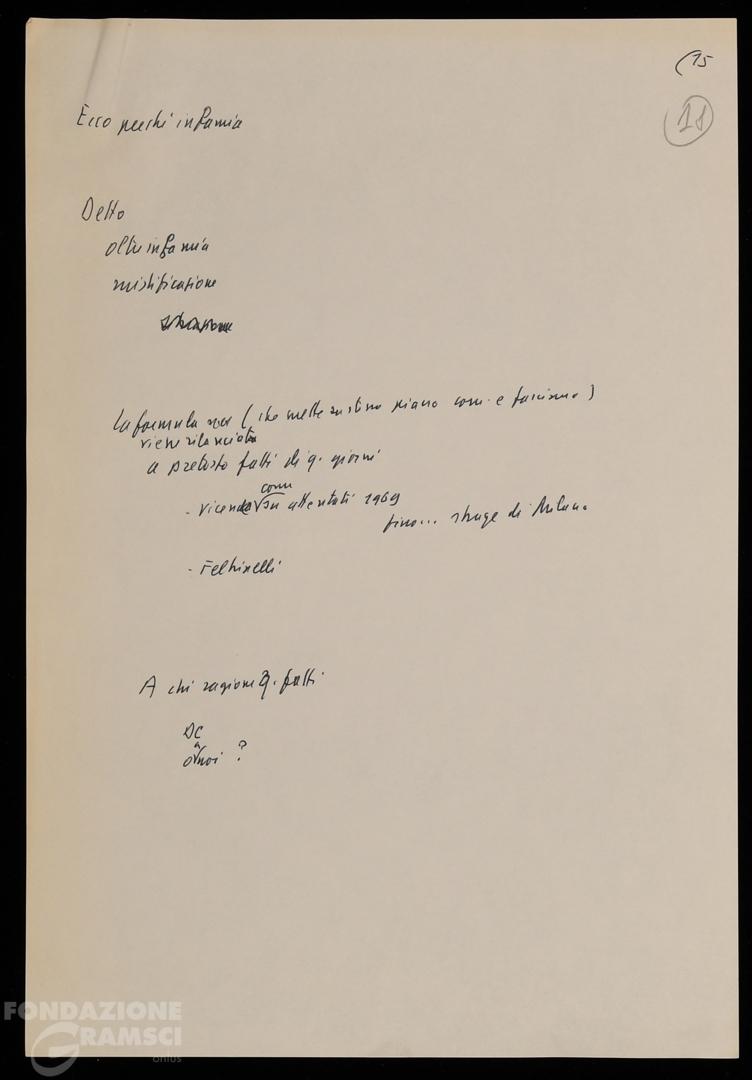 (15
18
Ecco perché infamia
Detto
oltre infamia
mistificazione
La formula (che mette su stesso piano com. e fascismo)
viene rilanciata
a pretesto fatti di q. giorni
com
- vicenda su attentati 1969
fino... strage di Milano
- Feltrinelli
A chi ragione q. fatti
DC
a
o noi ?
FONDAZIONE
GRAMSCI
onlus